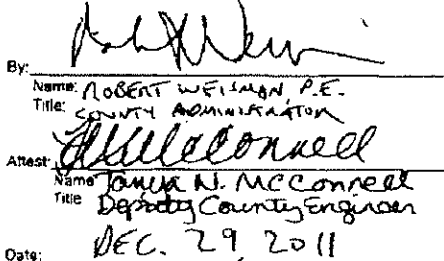 By:
Name: ROBERT WEISMAN P.E.
Title: COUNTY ADMINISTRATOR
Attest:
Name Tanya N. McConnell
Title Deputy County Engineer
Date: DEC. 29, 2011